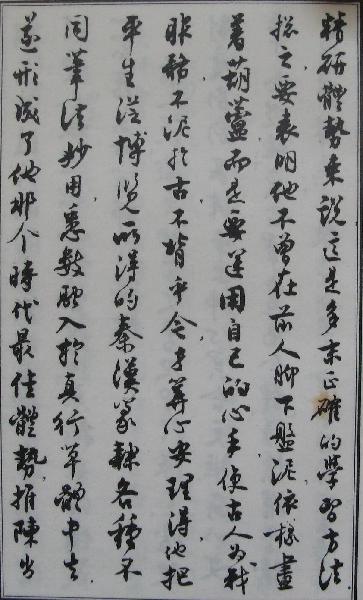 精研體勢來說這是多末正確的學習方法
揔之要表明他不曾在前人脚下盤泥依樣畫
着葫蘆而是要運用自己的心手使古人為我
服務不泥於古不背乎今才算心安理得他把
平生從博覽所得的秦漢篆隸各種不
同筆法妙用悉數融入於真行草體中去
遂形成了他那个時代最佳體勢推陳出